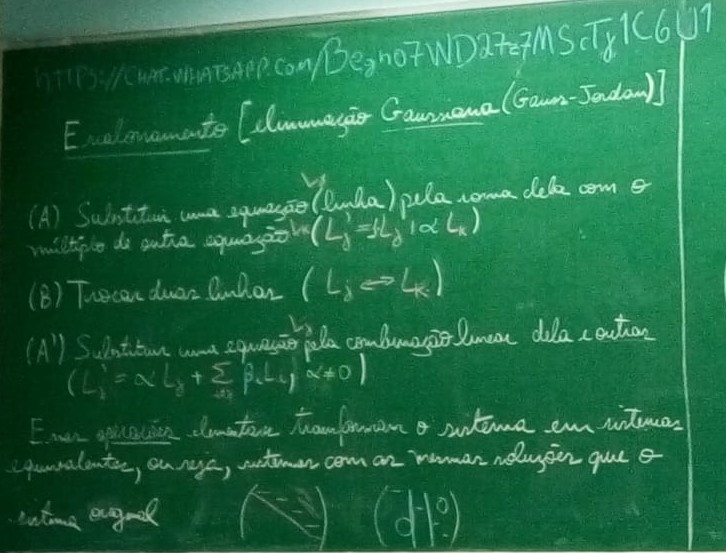 HTTPS://CHAT.WHATSAPP.COM/
Escalonamento [eliminação Gaussiana (Gauss-Jordan)]
Lj
(A) Substituir uma equação (linha) pela soma dela com o
múltiplo de outra equação Lk (Lj' = 1Lj + α Lk)
(B) Trocar duas linhas (Lj ↔ Lk)
Lj
(A') Substituir uma equação pela combinação linear dela e outras
(Lj' = α Lj + Σ βi Li, α≠0)
Essas operações elementares transformam o sistema em sistemas
equivalentes, ou seja, sistemas com as mesmas soluções que o
sistema original